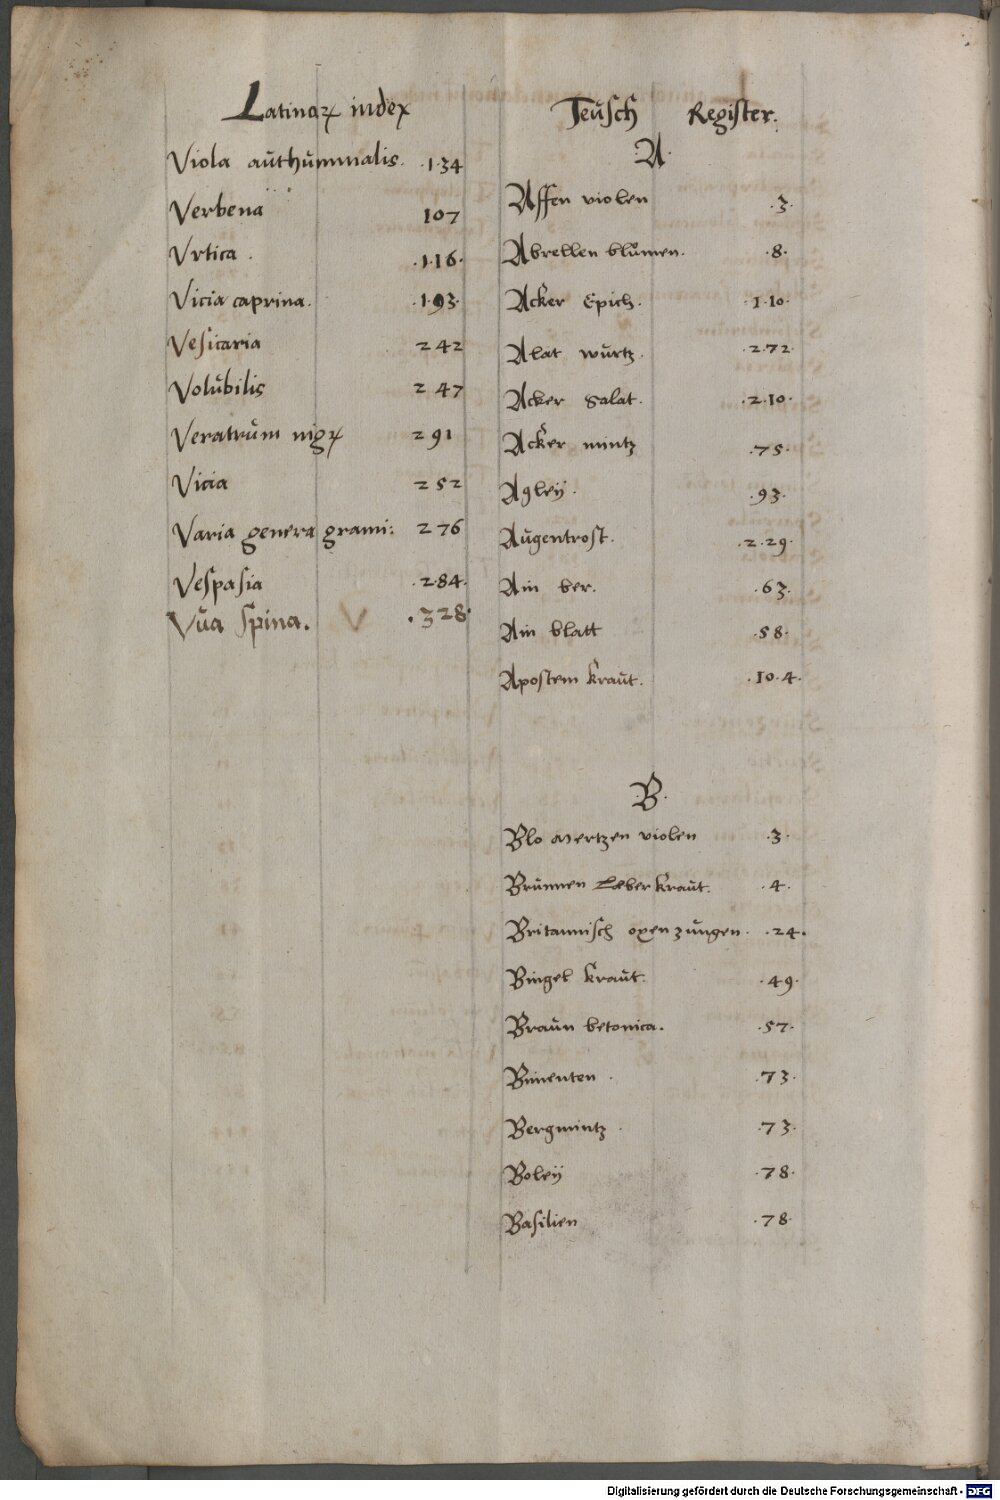 Latinaꝝ index
Viola aŭthŭmnalis. .1.34
Verbena 107
Vrtica . .1.16.
Vicia caprina. .193.
Vesicaria 242
Volŭbilis 247
Veratrŭm nigꝝ 291
Vicia 252
Varia genera grami: 276
Vespasia .284.
Vŭa spina. V .328.
Teŭsch Register.
.A.
Affen violen .3.
Abrellen blŭmen. .8.
Acker Epich. .1.10.
Alat wŭrtz. .2.72.
Acker Salat. .2.10.
Acker mintz .75.
Agleÿ. .93.
Aŭgentrost. .2.29.
Ain ber. .63.
Ain blatt .58.
Apostem kraŭt. .10.4.
.B.
Blo Mertzen violen .3.
Brŭnnen Læber kraŭt. .4.
Britannisch oxen zŭngen. .24.
Bingel kraŭt. .49.
Braŭn betonica. .57.
Bimenten . .73.
Bergmintz . .73.
Boleÿ .78.
Basilien .78.
Digitalisierung gefördert durch die Deutsche Forschungsgemeinschaft - DFG